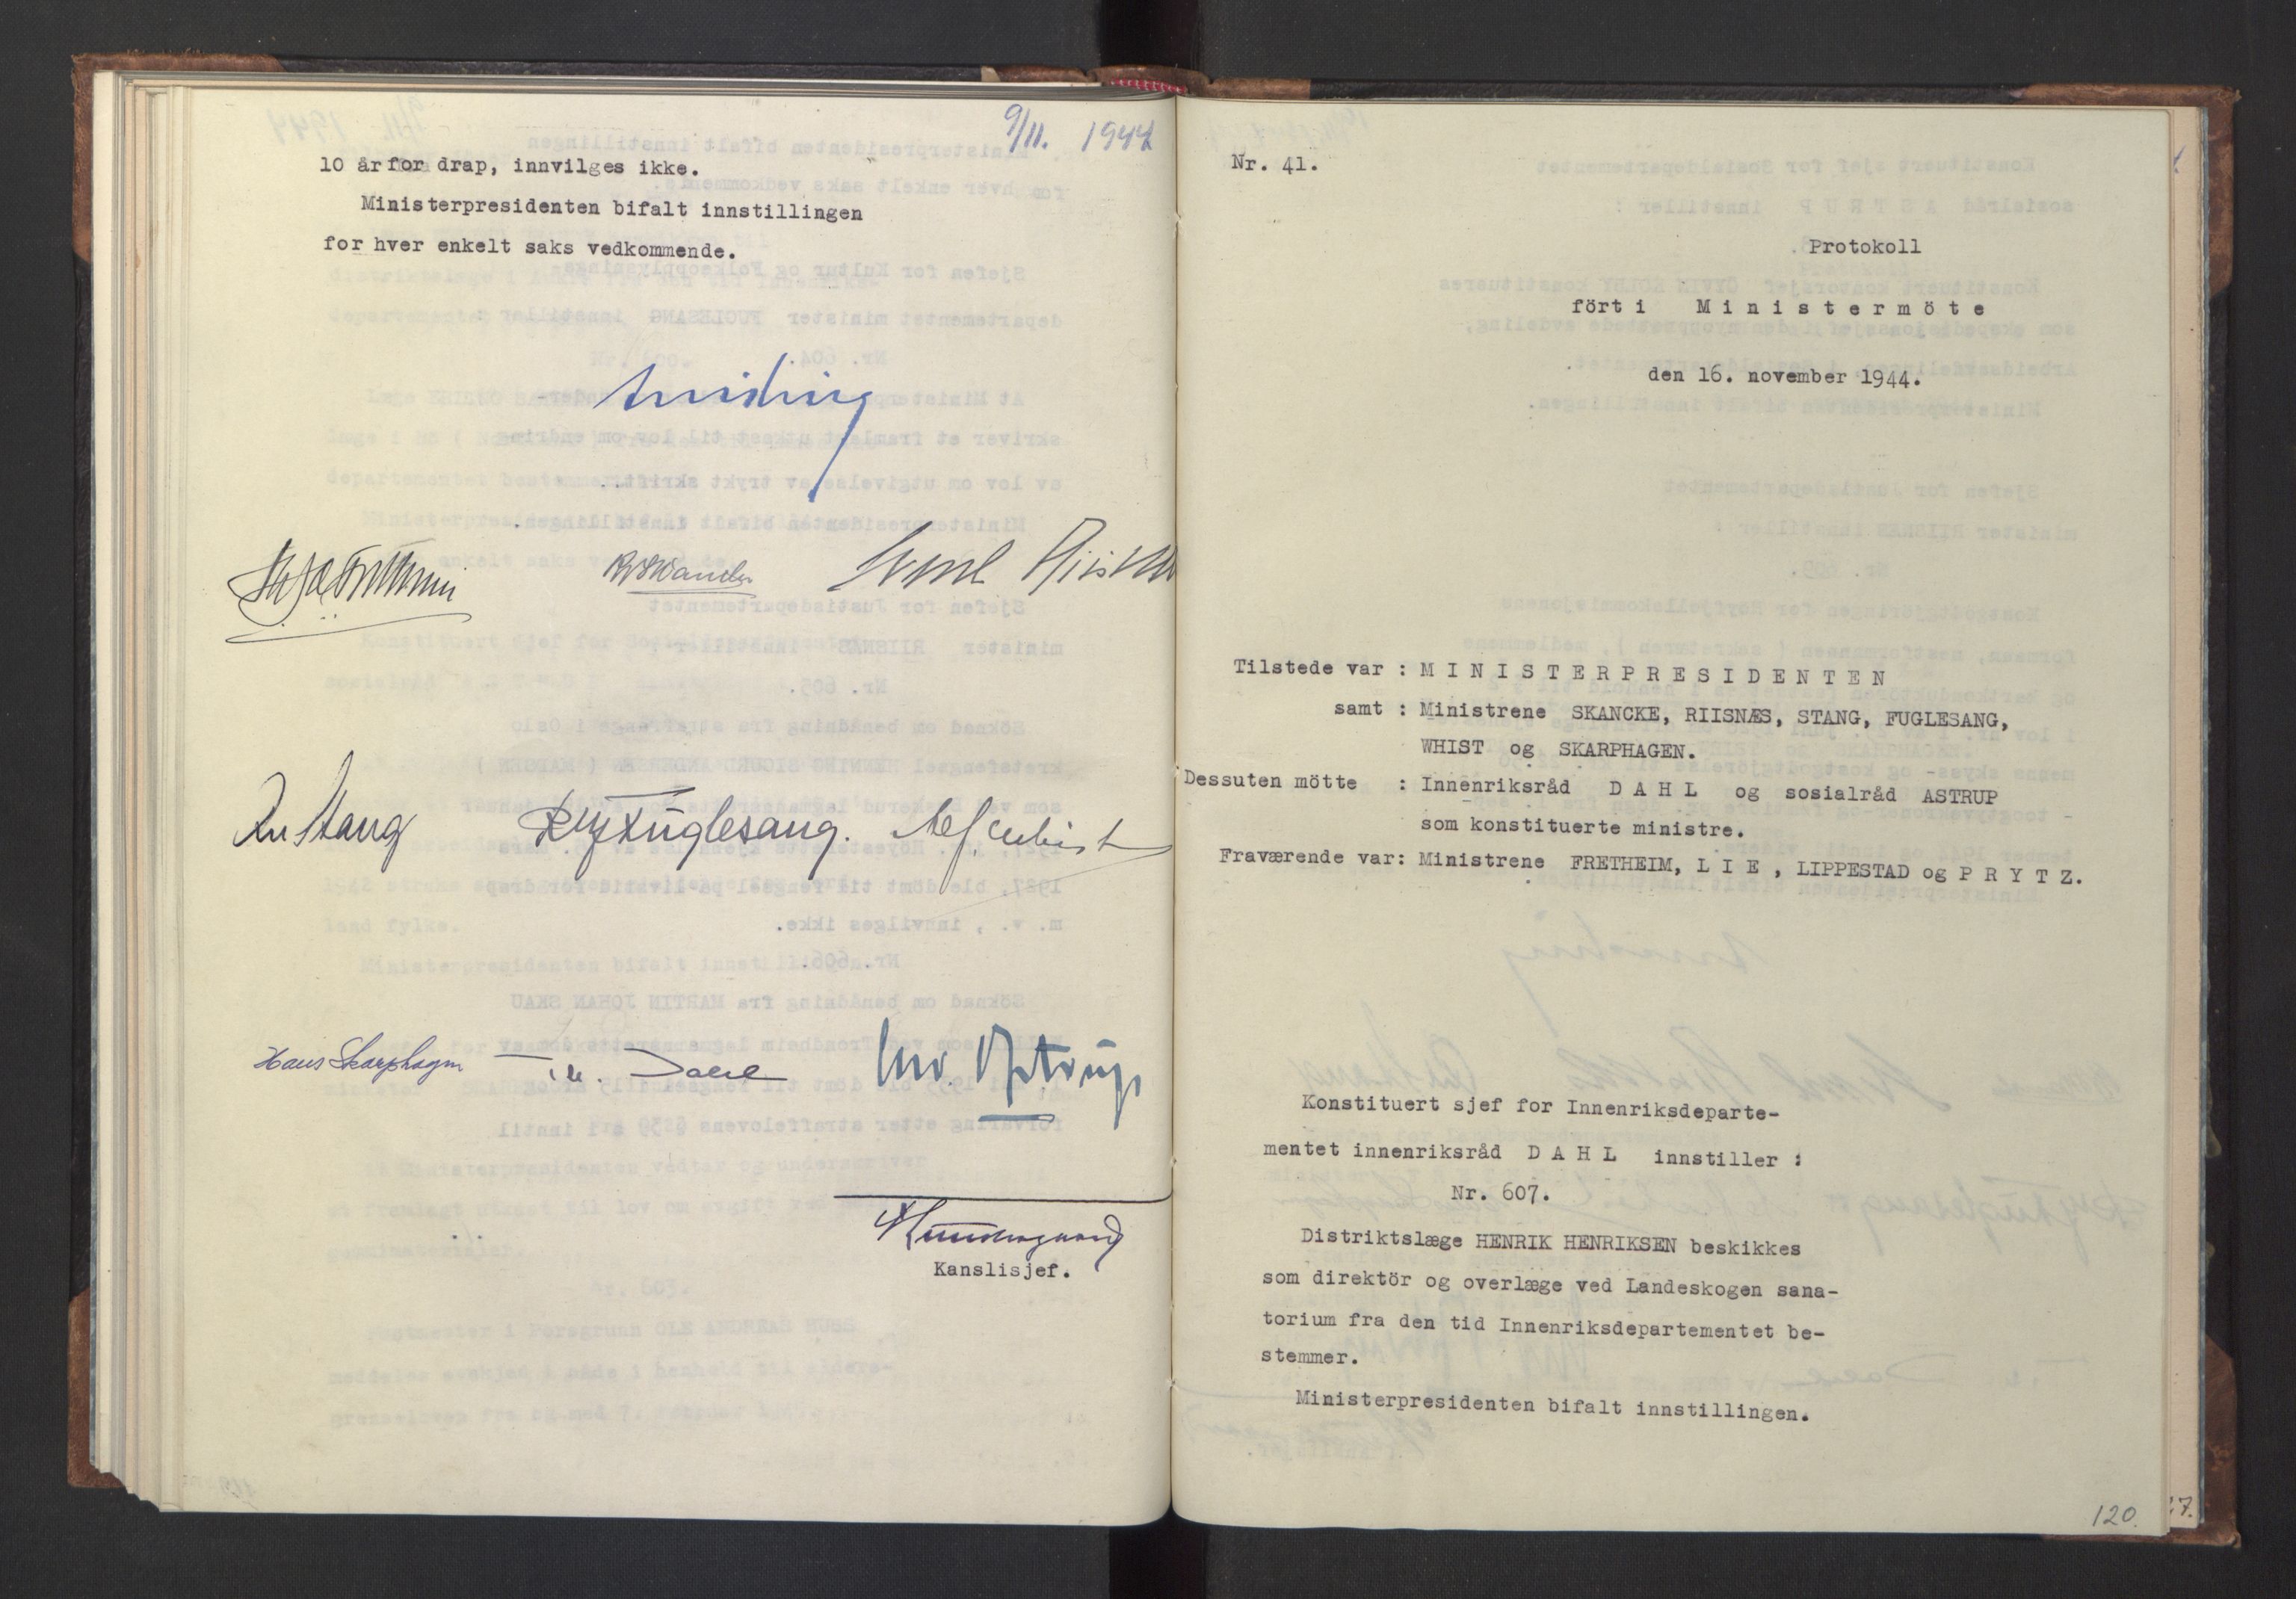 9/11. 1944
10 år for drap, innvilges ikke.
Ministerpresidenten bifalt innstillingen
for hver enkelt saks vedkommende.
Quisling
R Skancke
Sverre Riisnæs
Stang
Fuglesang.
Whist
Hans Skarphagen
Dahl
Astrup
Kanslisjef.
Nr. 41.
Protokoll
fört i Ministermöte
den 16. november 1944.
Tilstede var : MINISTERPRESIDENTEN
samt : Ministrene SKANCKE, RIISNÆS, STANG, FUGLESANG,
WHIST og SKARPHAGEN.
Dessuten mötte : Innenriksråd DAHL og sosialråd ASTRUP
som konstituerte ministre.
Fraværende var: Ministrene FRETHEIM, LIE, LIPPESTAD og PRYTZ.
Konstituert sjef for Innenriksdeparte-
mentet innenriksråd DAHL innstiller :
Nr. 607.
Distriktslæge HENRIK HENRIKSEN beskikkes
som direktör og overlæge ved Landeskogen sana-
torium fra den tid Innenriksdepartementet be-
stemmer.
Ministerpresidenten bifalt innstillingen.
120.